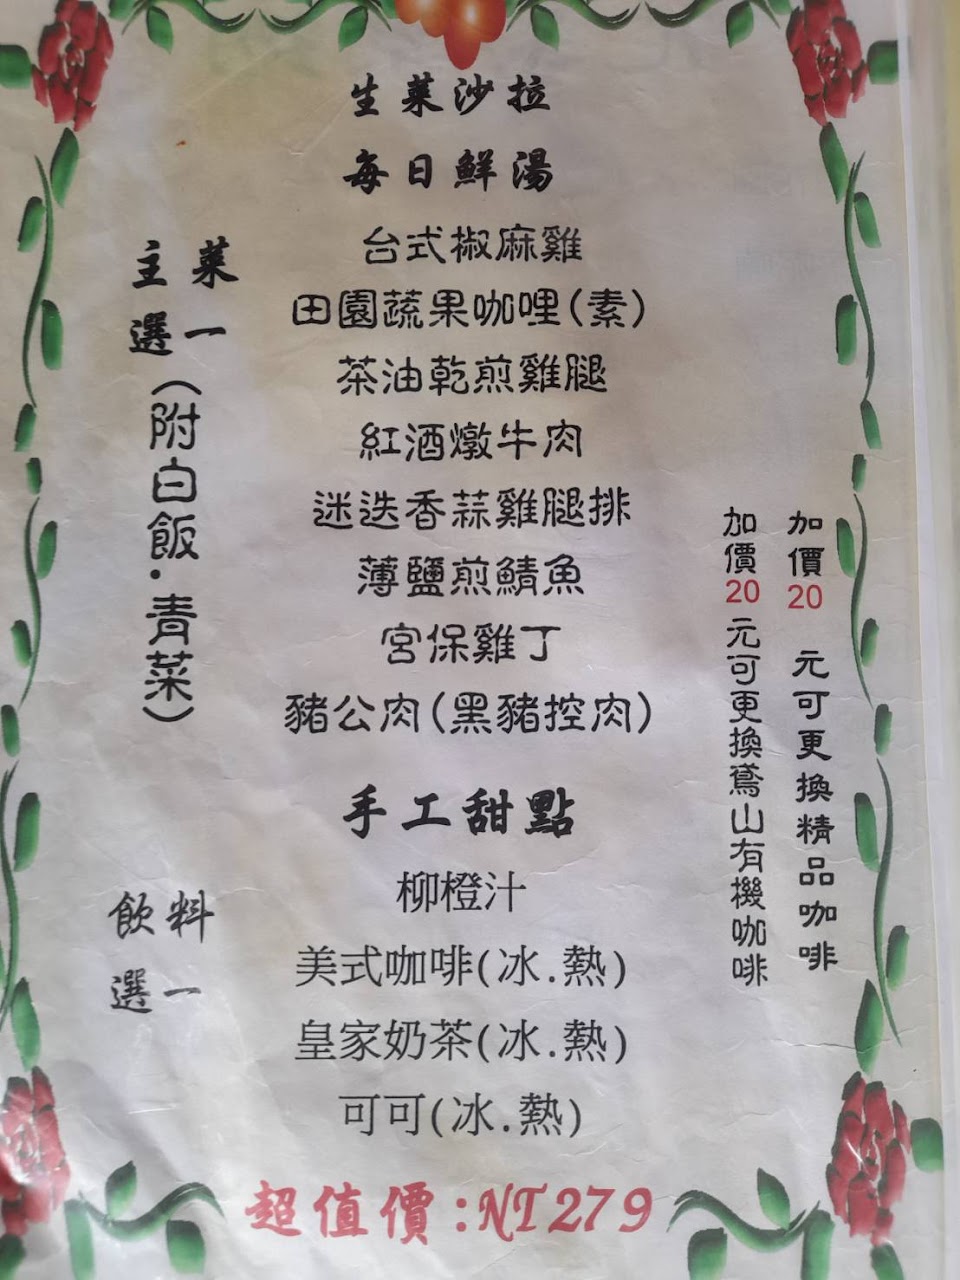 生菜沙拉
每日鮮湯
主菜
選一
(附白飯·青菜)
台式椒麻雞
田園蔬果咖哩(素)
茶油乾煎雞腿
紅酒燉牛肉
迷迭香蒜雞腿排
薄鹽煎鯖魚
宮保雞丁
豬公肉(黑豬控肉)
手工甜點
飲料
選一
柳橙汁
美式咖啡(冰.熱)
皇家奶茶(冰.熱)
可可(冰.熱)
加價20 元可更換精品咖啡
加價20元可更換鳶山有機咖啡
超值價:NT279